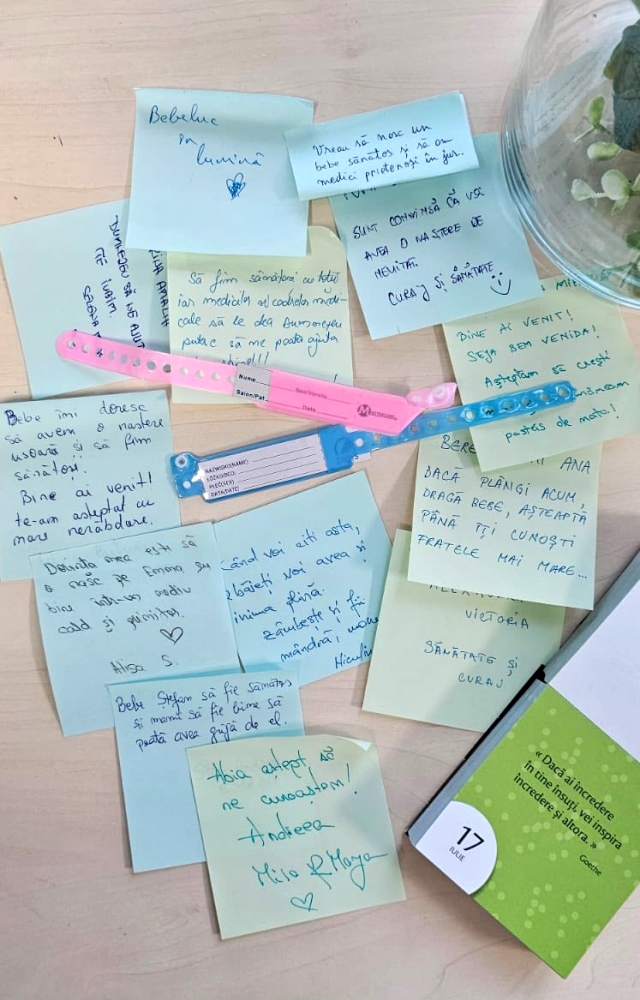 Bebeluc
în
lumină
Vreau să nasc un
bebe sănătos și să am
medici prietenoși în jur.
SUNT CONVINSĂ CĂ VOI
AVEA O NAȘTERE DE
NEUITAT.
CURAJ ȘI SĂNĂTATE
DUMNEZEU SĂ NE AJUTE
TE IUBIM.
Să fim sănătoși cu toții
iar medicilor și cadrelor medi-
cale să le dea Dumnezeu
putere să ne poată ajuta
BINE AI VENIT!
SEJA BEM VENIDA!
Așteptăm să crești
pașii de mata!
Nume
Salon/Pat
Sex/Varsta
Data
NAZWISKO(NAME)
ŁÓŻKO(BED)
PŁEĆ(SEX)
DATA(DATE)
Bebe îmi doresc
să avem o naștere
ușoară și să fim
sănătoși!
Bine ai venit!
te-am așteptat cu
mare nerăbdare.
ANA
DACĂ PLÂNGI ACUM,
DRAGĂ BEBE, AȘTEAPTĂ
PÂNĂ ÎȚI CUNOȘTI
FRATELE MAI MARE...
Dorința mea este să
o nasc pe Emma cu
bine într-un mediu
cald și primitor.
Alisa S.
Când voi citi asta,
băieți voi avea și
inima plină.
Zâmbește și fii
mândră,
VICTORIA
SĂNĂTATE ȘI
CURAJ
Bebe Ștefan să fie sănătos
și mami să fie bine să
poată avea grijă de el.
Abia aștept să
ne cunoaștem!
Andreea
« Dacă ai încredere
în tine însuți, vei inspira
încredere și altora. »
Goethe
17
IULIE